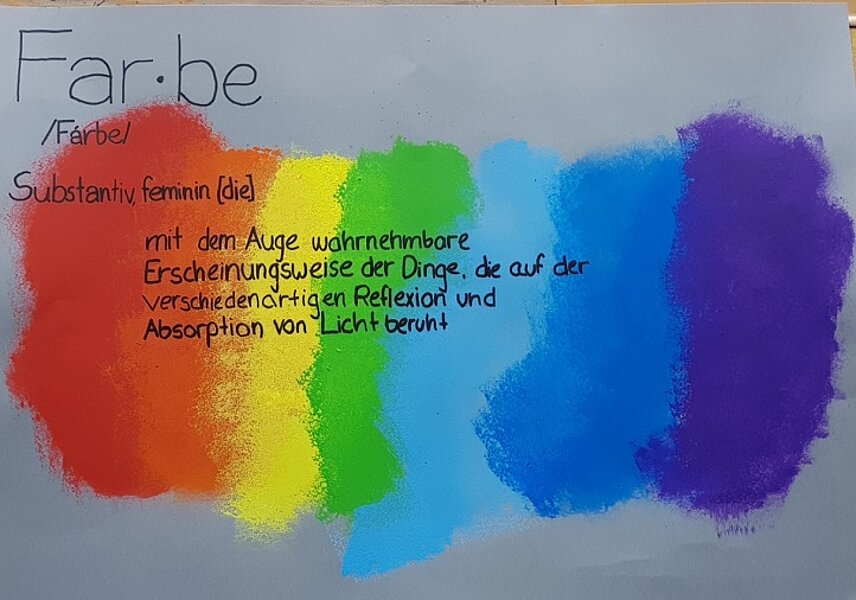 Far·be
/Fárbe/
Substantiv, feminin [die]
mit dem Auge wahrnehmbare
Erscheinungsweise der Dinge, die auf der
verschiedenartigen Reflexion und
Absorption von Licht beruht